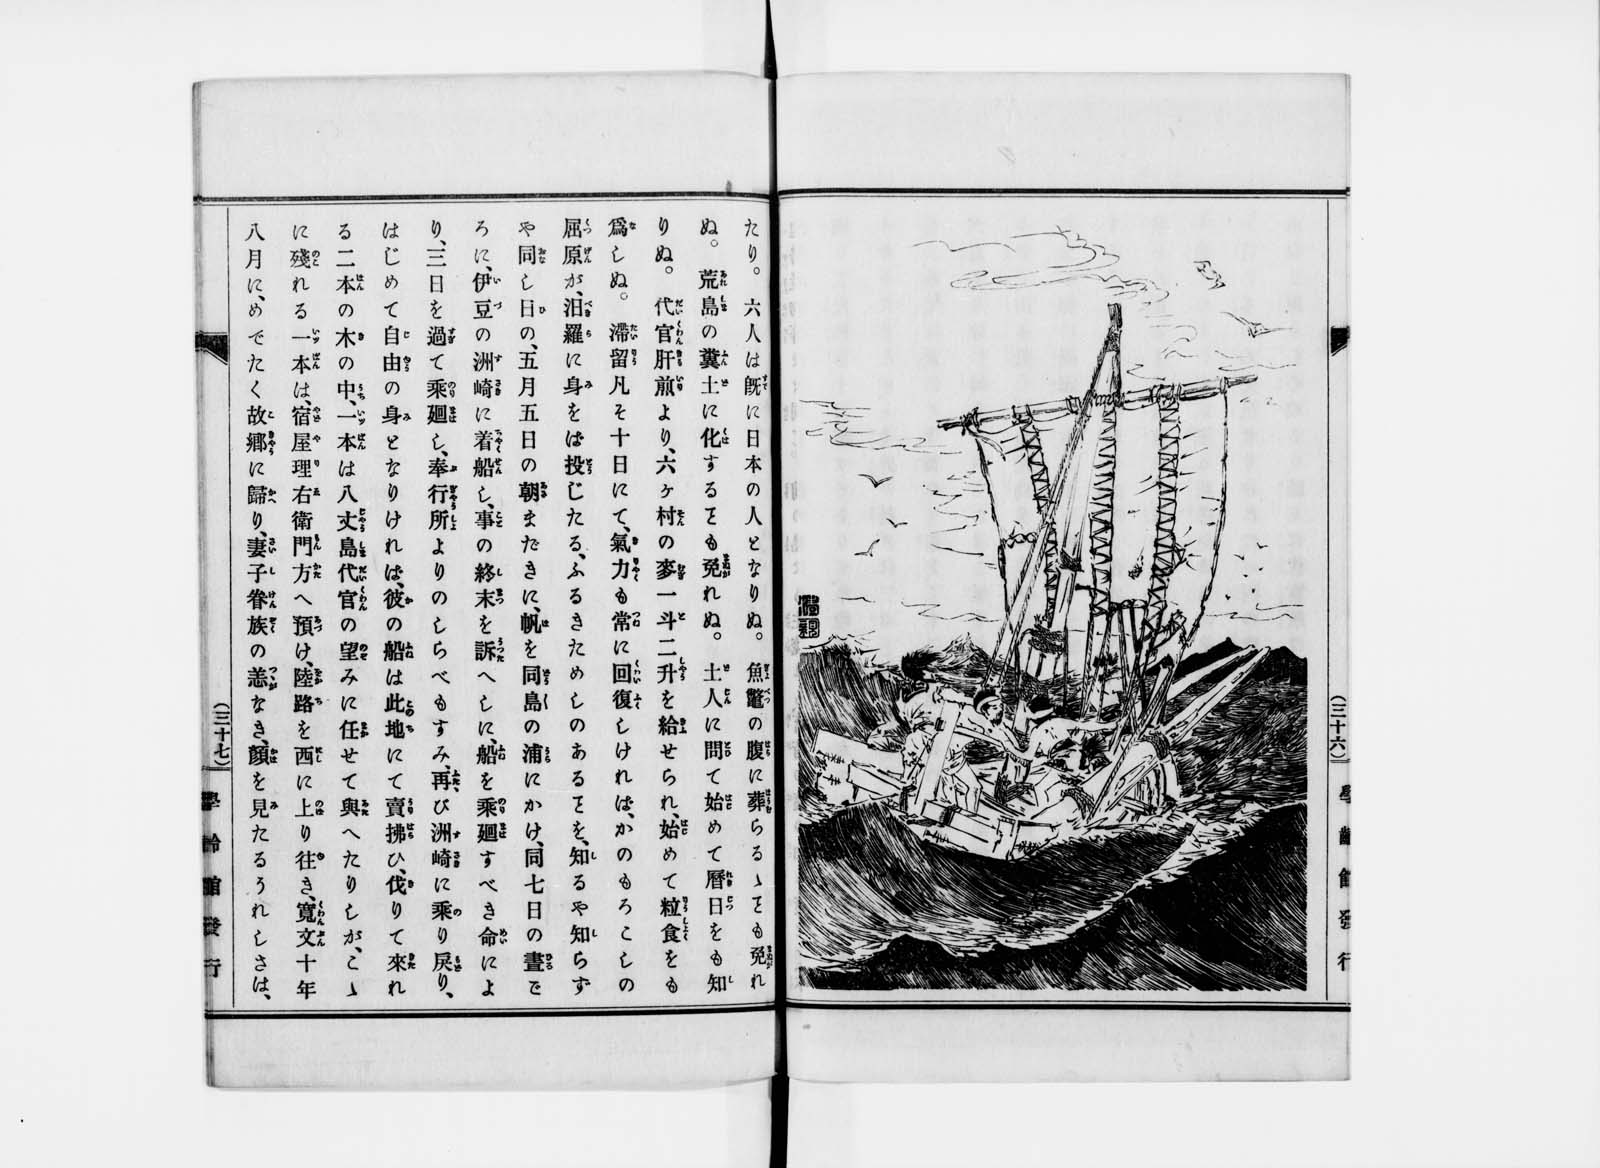 (三十六)
學齡館發行
たり。六人は既に日本の人となりぬ。魚鼈の腹に葬らるゝとも免れ
ぬ。荒島の糞土に化するとも免れぬ。土人に問て始めて曆日をも知
りぬ。代官肝煎より、六ヶ村の麥一斗二升を給せられ、始めて粒食をも
爲しぬ。滯留凡そ十日にて、氣力も常に回復しければ、かのもろこしの
屈原が、汨羅に身をば投じたる、ふるきためしのあるとを、知るや知らず
や同し日の、五月五日の朝まだきに、帆を同島の浦にかけ、同七日の晝で
ろに、伊豆の洲崎に着船し、事の終末を訴へしに、船を乘廻すべき命によ
り、三日を過て乘廻し、奉行所よりのしらべもすみ、再び洲崎に乘り戻り、
はじめて自由の身となりければ、彼の船は此地にて賣拂ひ、伐りて來れ
る二本の木の中、一本は八丈島代官の望みに任せて與へたりしが、こゝ
に殘れる一本は、宿屋理右衛門方へ預け、陸路を西に上り往き、寬文十年
八月に、めでたく故郷に歸り、妻子眷族の恙なき、顏を見たるうれしさは、
(三十七)
學齡館發行